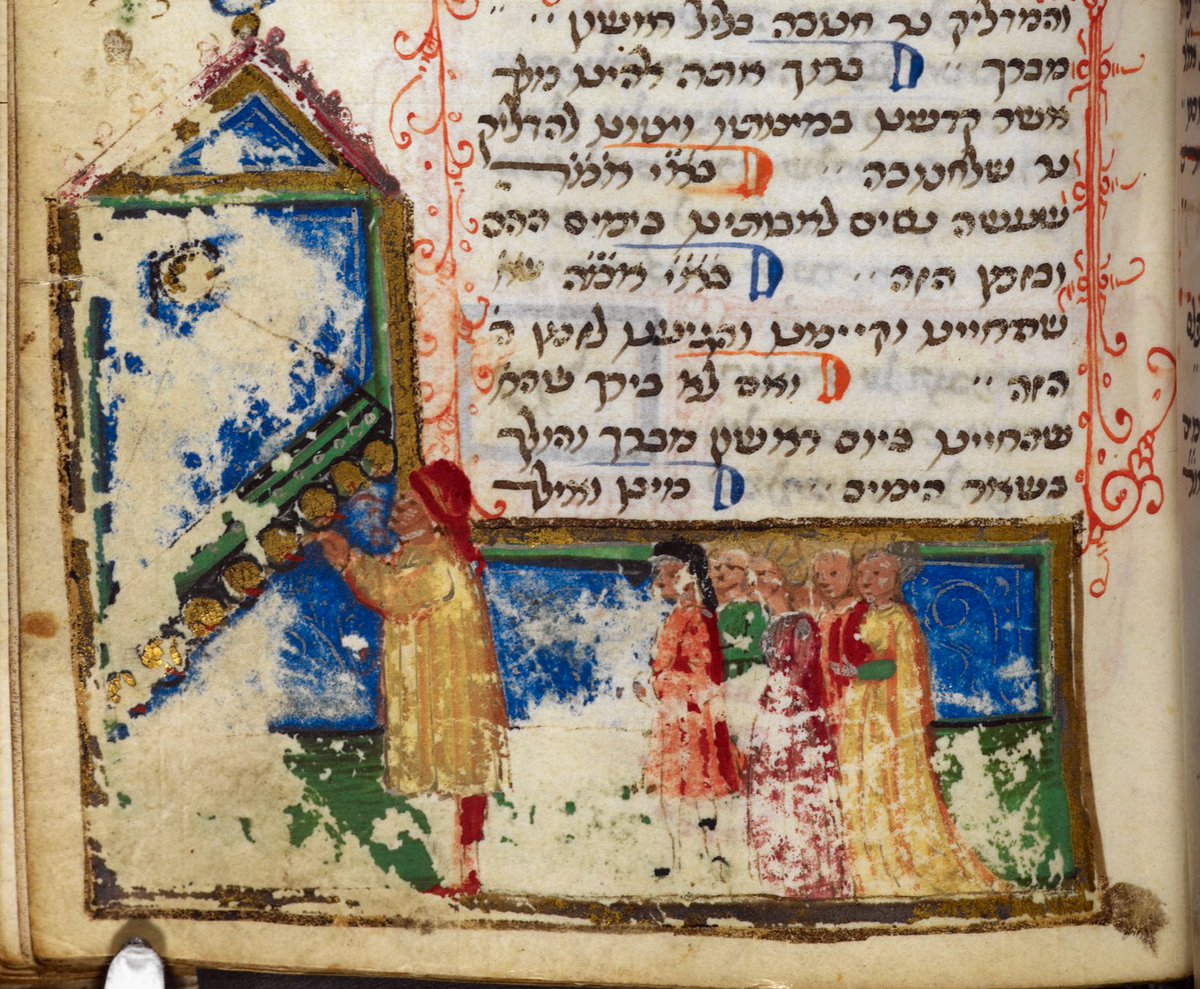 והמדליק נר חנוכה בליל ראשון
מברך ברוך אתה אלהינו מלך
אשר קדשנו במצותיו וצונו להדליק
נר שלחנוכה בא"י אמ"ה
שעשה נסים לאבותינו בימים ההם
ובזמן הזה בא"י אמ"ה
שהחיינו וקיימנו והגיענו לזמן ה
הזה ואם לא בירך שהח
שהחיינו ביום ראשון מברך והולך
בשאר הימים מיכן ואילך